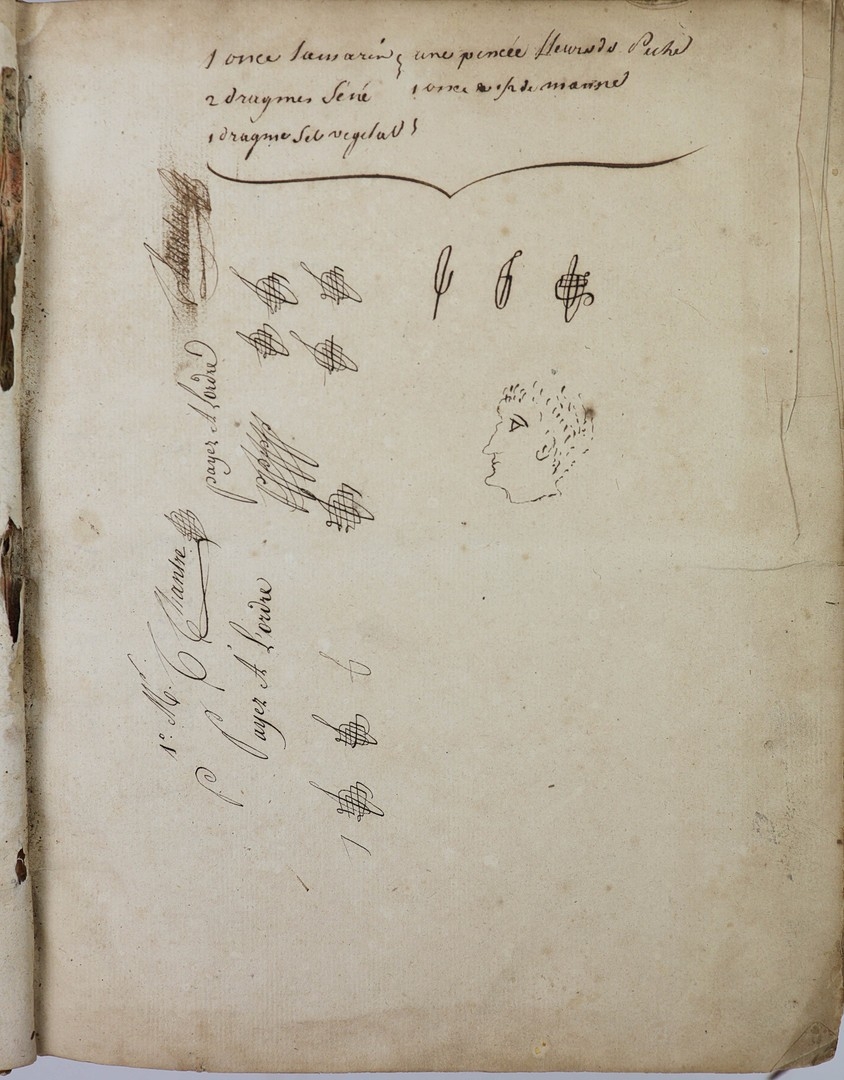 1 once tamarin une pincée fleurs de Peché
2 dragmes Séné 1 once & 1/2 de manne
1 dragme Sel vegetal
payez A L'ordre
Sr. Mr. Chantre
P. Payez A L'ordre